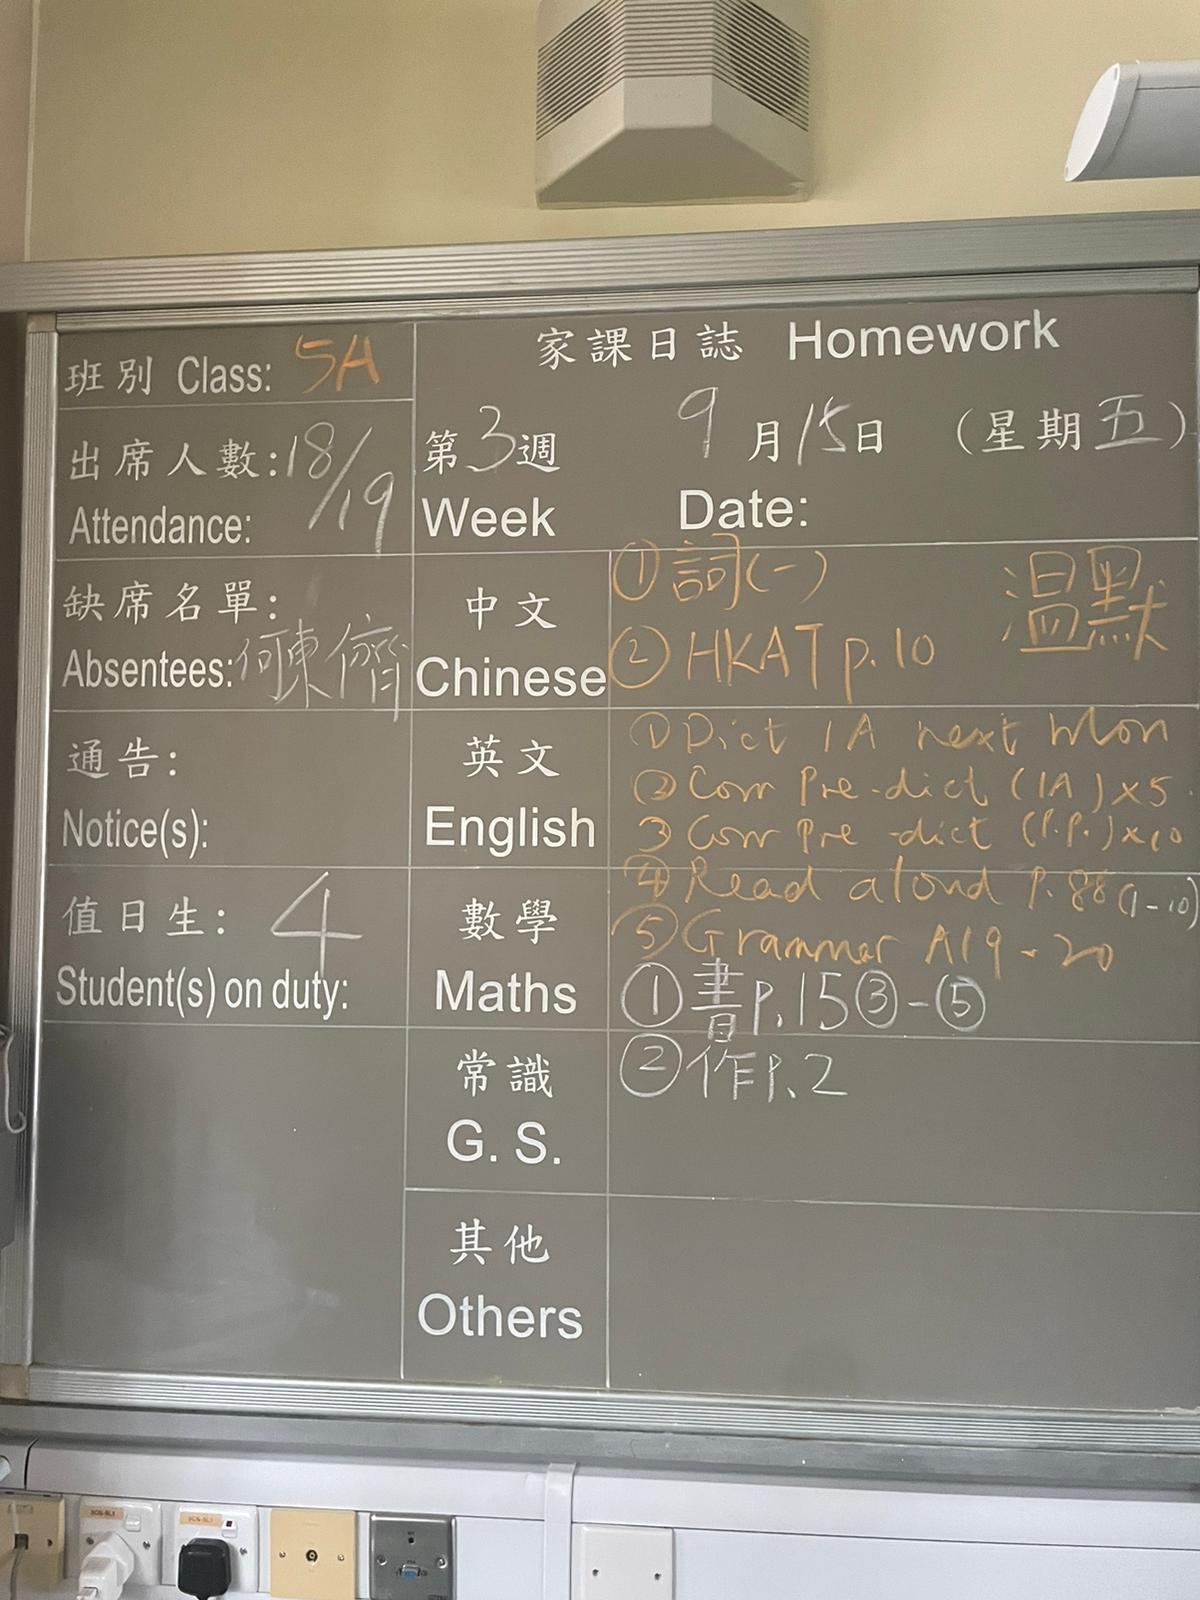 班別 Class: 5A
出席人數: 18/19
Attendance:
缺席名單:
Absentees: 何東儕
通告:
Notice(s):
值日生: 4
Student(s) on duty:
家課日誌 Homework
第3週 9月15日 (星期五)
Week Date:
中文
Chinese
① 詞(一)
② HKAT p.10
溫默
英文
English
① Dict 1A next Mon
② Corr Pre-dict (1A) x5
③ Corr Pre-dict (P.P.) x10
④ Read aloud P.88 (1-10)
⑤ Grammar A19-20
數學
Maths
① 書p.15③-⑤
② 作P.2
常識
G. S.
其他
Others